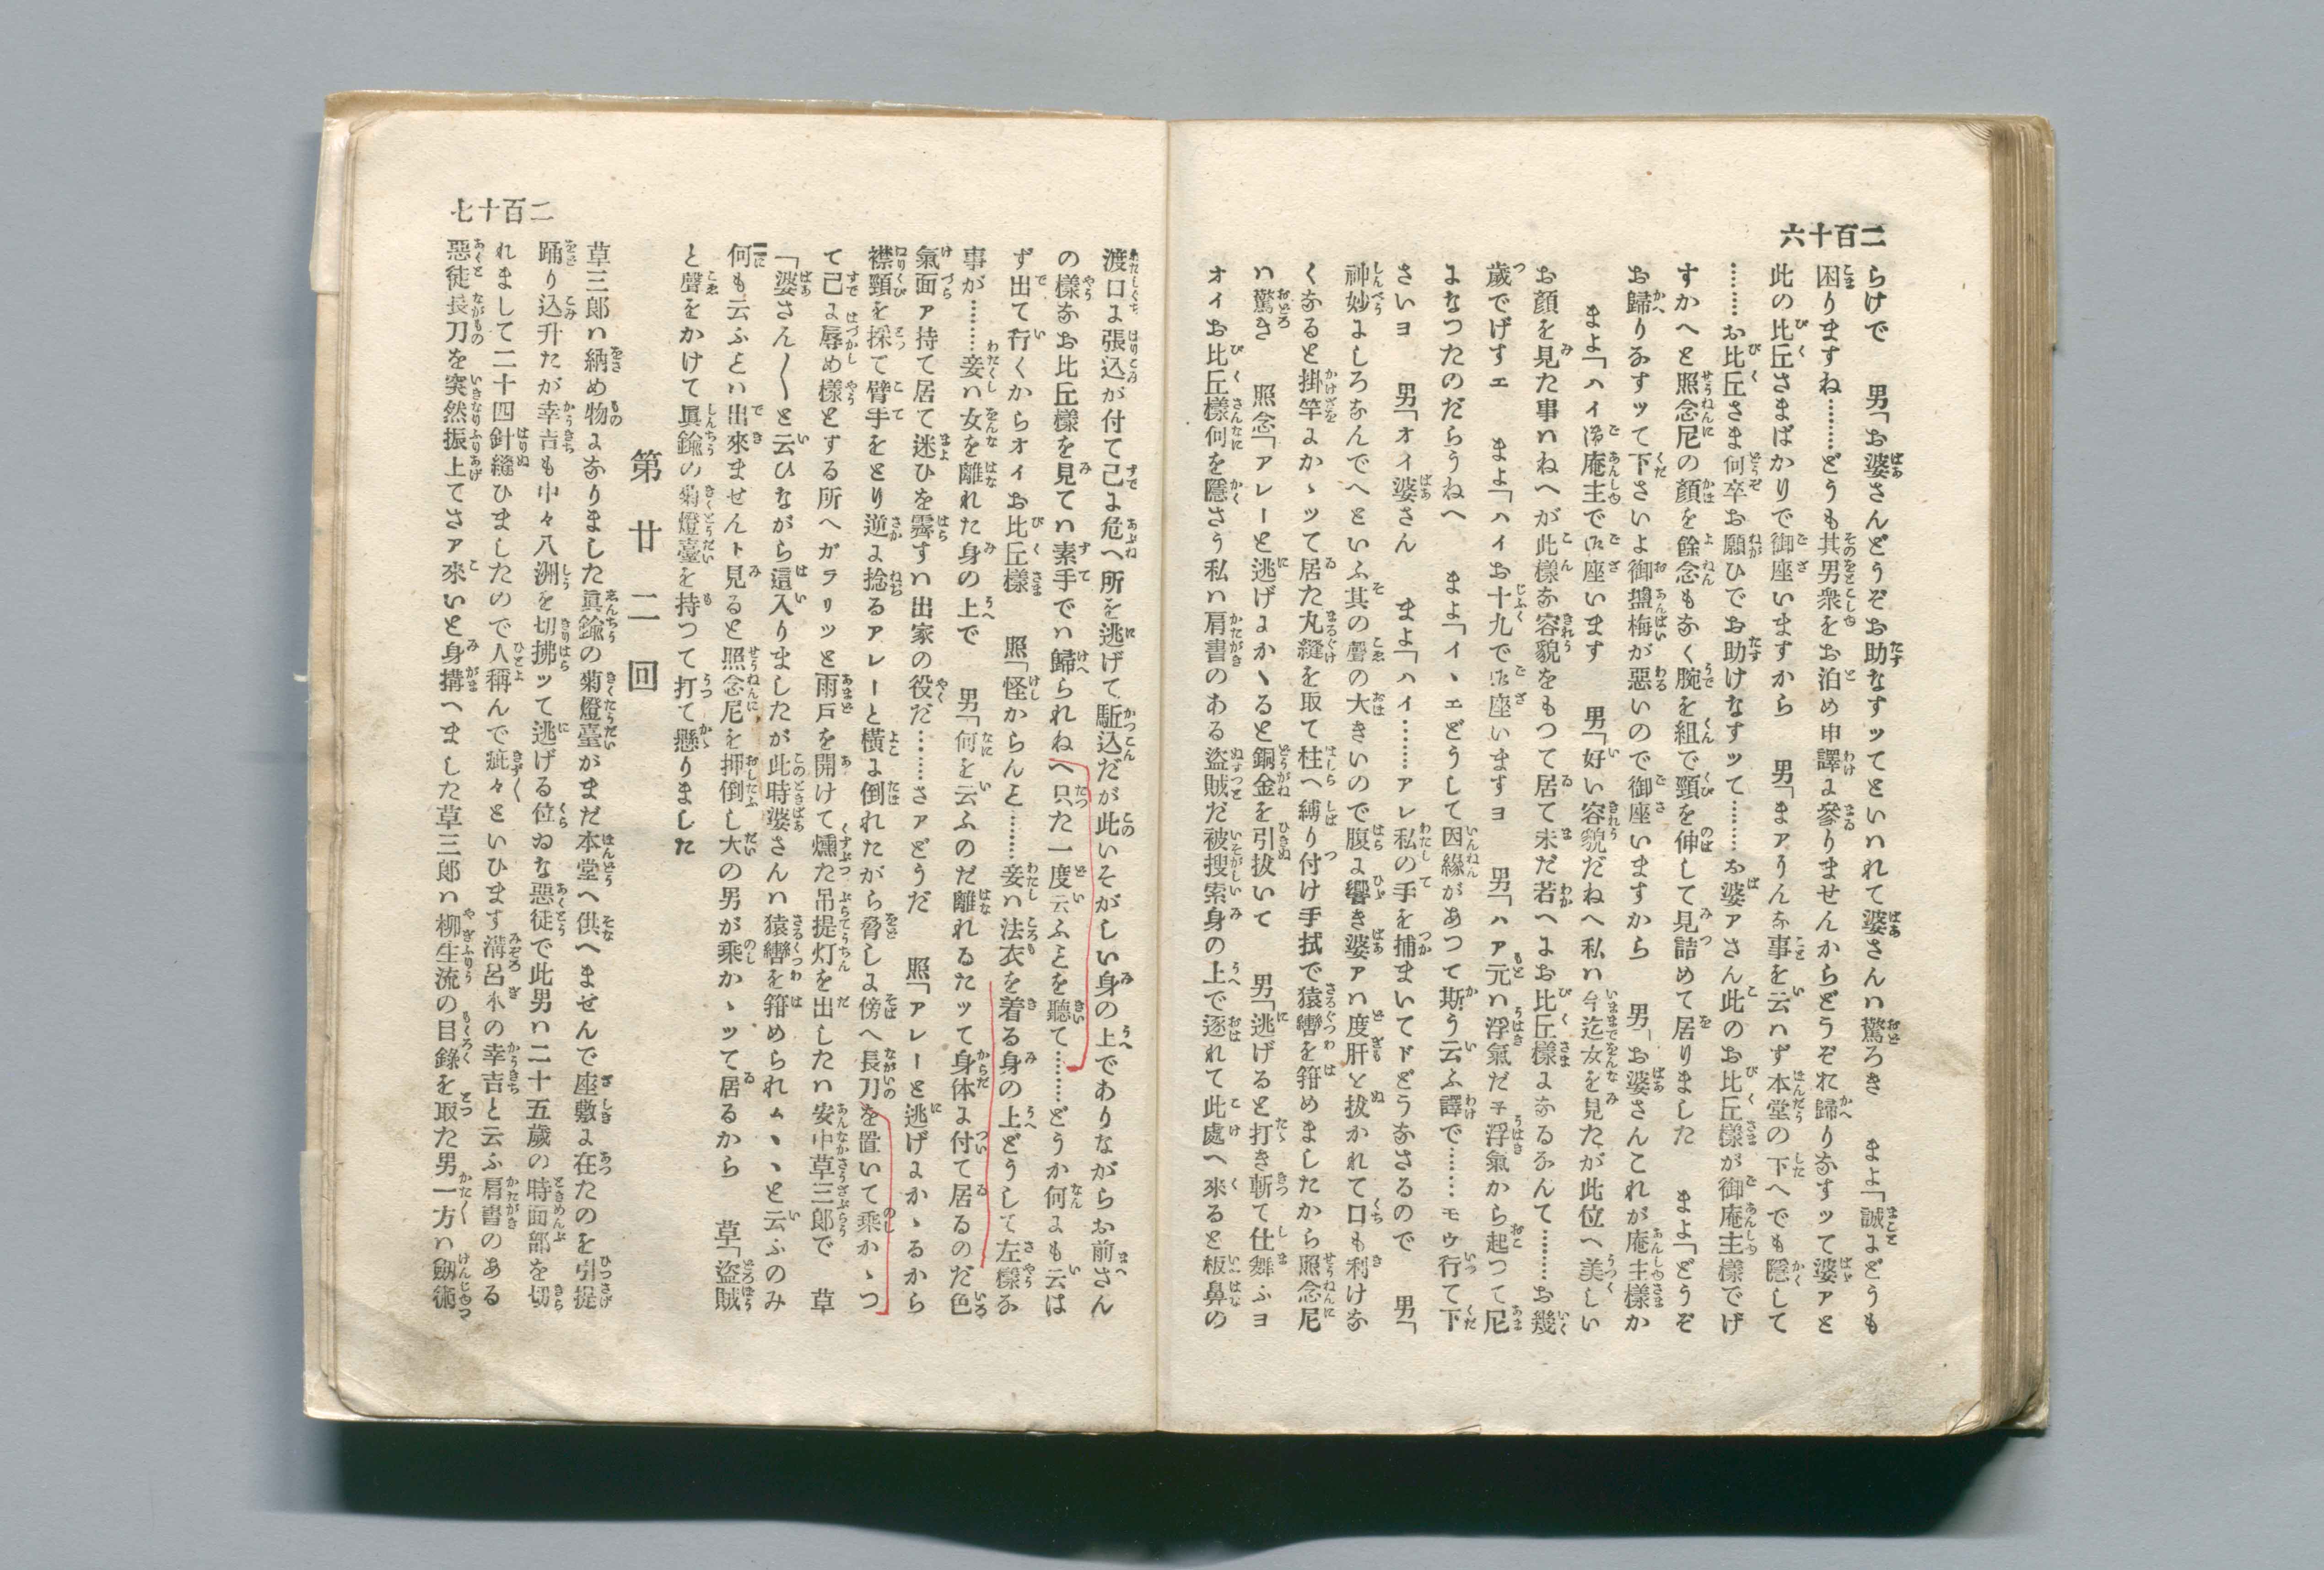 二百十六
らけで　男「お婆さんどうぞお助なすッてといハれて婆さんハ驚ろき　まよ「誠にどうも
困りますね………どうも其男衆をお泊め申譯に參りませんからどうぞお歸りなすッて婆アと
此の比丘さまばかりで御座いますから　男「まアそんな事を云ハず本堂の下へでも隱して
………お比丘さま何卒お願ひでお助けなすッて………お婆アさん此のお比丘樣が御庵主樣でげ
すかへと照念尼の顏を餘念もなく腕を組で頸を伸して見詰めて居りました　まよ「どうぞ
お歸りなすッて下さいよ御塩梅が惡いので御座いますから　男「お婆さんこれが庵主樣か
まよ「ハイ御庵主で御座います　男「好い容貌だねへ私ハ今迄女を見たが此位へ美しい
お顏を見た事ハねへが此樣な容貌をもつて居て未だ若へにお比丘樣になるなんて………お幾
歳でげすエ　まよ「ハイお十九で御座いますヨ　男「ハア元ハ浮氣だネ浮氣から起つて尼
になつたのだらうねへ　まよ「イヽエどうして因緣があつて斯う云ふ譯で………モウ行て下
さいヨ　男「オイ婆さん　まよ「ハイ………アレ私の手を捕まいてドどうなさるので　男「
神妙にしろなんでへといふ其の聲の大きいので腹に響き婆アハ度肝を拔かれて口も利けな
くなると掛竿にかヽッて居た丸縫を取て柱へ縛り付け手拭で猿轡を箝めましたから照念尼
ハ驚き　照念「アレーと逃げにかヽると銅金を引拔いて　男「逃げると打き斬て仕舞ふヨ
オイお比丘樣何を隱さう私ハ肩書のある盜賊だ被搜索身の上で逐れて此處へ來ると板鼻の
二百十七
渡口に張込が付て己に危へ所を逃げて駈込だが此いそがしい身の上でありながらお前さん
の樣なお比丘樣を見てハ素手でハ歸られねへ只た一度云ふことを聽て………どうか何にも云は
ず出て行くからオイお比丘樣　照「怪からんと………妾ハ法衣を着る身の上どうして左樣な
事が………妾ハ女を離れた身の上で　男「何を云ふのだ離れるたッて身体に付て居るのだ色
氣面ア持て居て迷ひを霽すハ出家の役だ………さアどうだ　照「アレーと逃げにかヽるから
襟頸を採て臂手をとり逆に捻るアレーと横に倒れたがら脅しに傍へ長刀を置いて乘かヽつ
て己に辱め樣とする所へガラリッと雨戸を開けて燻た吊提灯を出したハ安中草三郎で　草
「婆さん〱と云ひながら這入りましたが此時婆さんハ猿轡を箝められムヽヽと云ふのみ
何も云ふことハ出來ませんト見ると照念尼を押倒し大の男が乘かヽッて居るから　草「盜賊
と聲をかけて眞鍮の菊燈臺を持つて打て懸りました
第廿二回
草三郎ハ納め物になりました眞鍮の菊燈臺がまだ本堂へ供へませんで座敷に在たのを引提
踊り込升たが幸吉も中々八洲を切拂ッて逃げる位ゐな惡徒で此男ハ二十五歲の時面部を切
れまして二十四針縫ひましたので人稱んで疵々といひます溝呂木の幸吉と云ふ肩書のある
惡徒長刀を突然振上てさア來いと身搆へました草三郎ハ柳生流の目錄を取た男一方ハ劔術